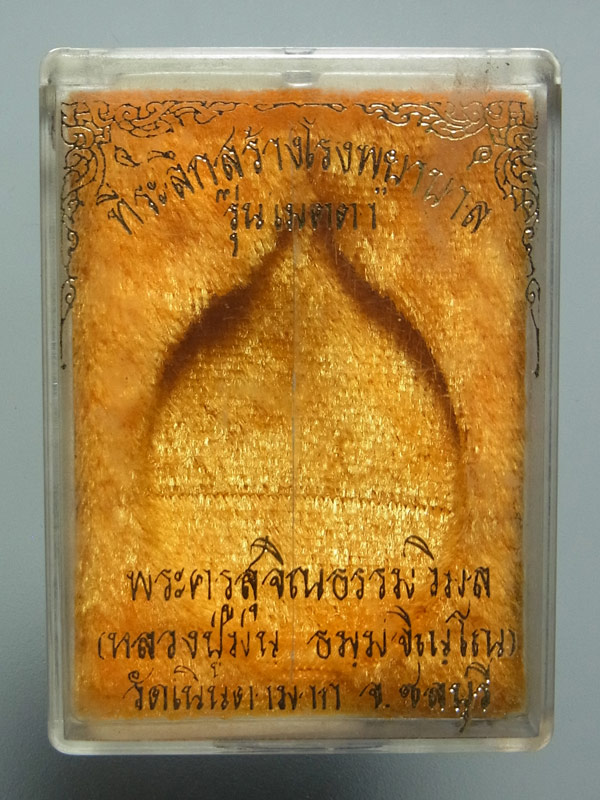 ที่ระลึกสร้างโรงพยาบาล
รุ่นเมตตา
พระครูสุจิณธรรมวิมล
(หลวงปู่ม่น ธมฺมจิณฺโณ)
วัดเนินตามาก จ.ชลบุรี